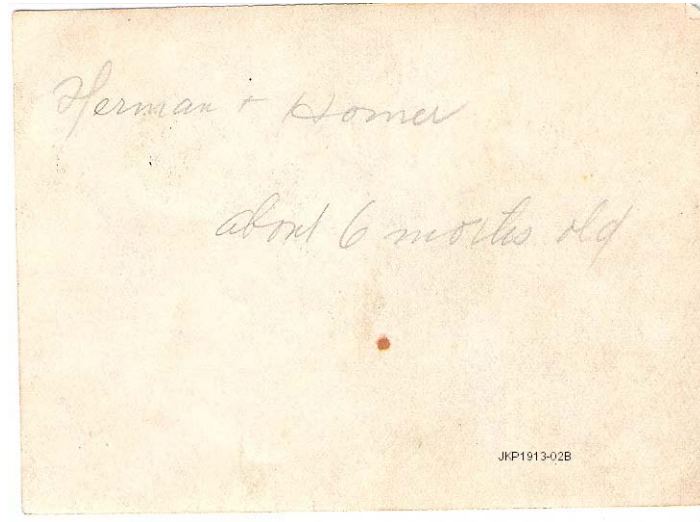 Herman + Homer
about 6 months old
JKP1913-02B